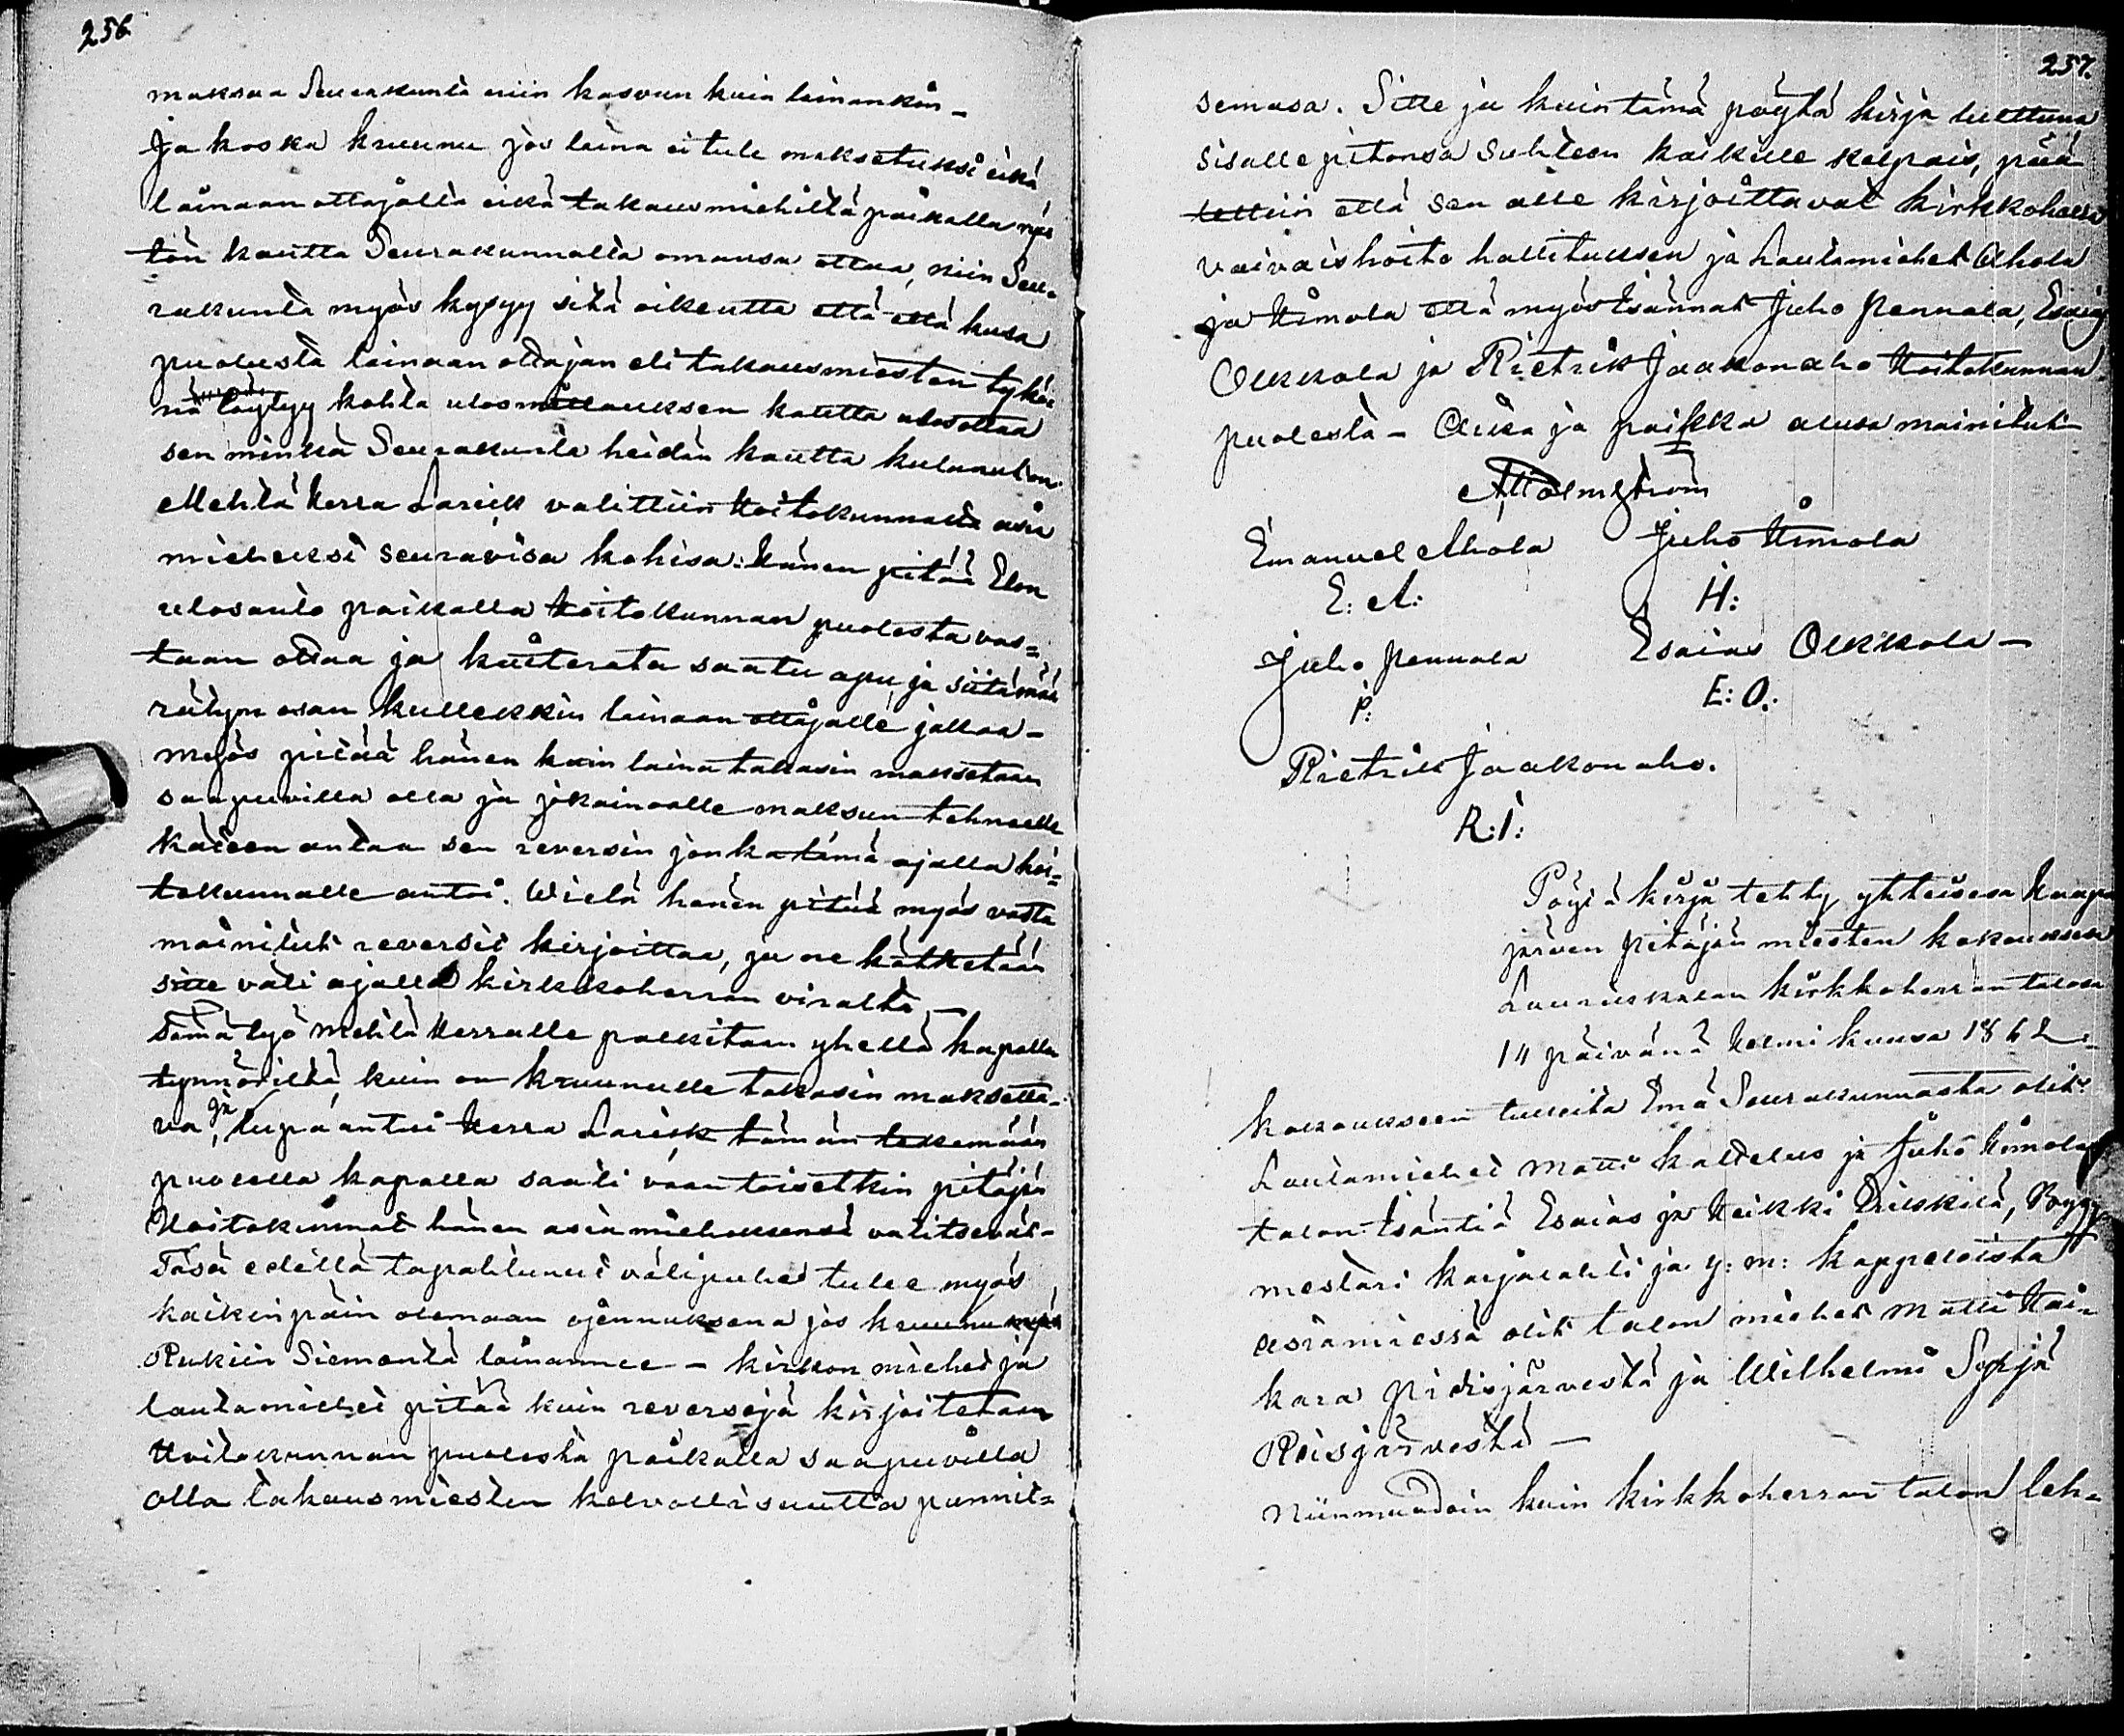 256.
maksaa Seurakunta niin kasvun kuin lainankin –
Ja koska kruunu jos laina ei tule maksetuksi eikä
lainaan ottajalla eikä takausmiehiltä paikalla
tön kautta Seurakunnalta omansa ottaa, niin Seu-
rakunta myös kysyy sitä oikeutta että että kusa
puolusta lainaan ottajan eli takausmiesten tykö
nä löytyy kohta ulosmittauksen kautta ulosottaa
sen minkä Seurakunta heidän kautta kulunut on.
Mehtä Herra Larisk valittiin Hoitokunnalta asia
mieheksi seuravisa kohisa: Hänen pitää Elon
ulosanto paikalla Hoitokunnan puolesta vas=
taan ottaa ja kuiterata saatu apu, ja siitä mää
rätyn osan kullekkin lainaan ottajalle jakaa –
myös pitää hänen kuin laina takasin maksetaan
saapuvilla olla ja jokainoalle maksun tehneelle
käteen antaa sen reversin jonka tämä ajalla hoi=
tokunnalle antoi. Wielä hänen pitää myös vasta
mainitut reversit kirjoittaa, ja ne kätketään
sitte väli ajalla kirkkoherran viralta –
Tämä työ Mehtä Herralle palkitaan yhellä kapalla
tynnöriltä, kuin on kruunulle takasin maksetta-
va, ja lupa antoi Herra Larisk tämän tekemään
puolella kapalla saati vaan toisetkin pitäjän
Hoitokunnat hänen asiamieheksensä valitsevat –
Täsä edellä tapahtunut välipuhe tulee myös
kaikin päin olemaan ojennuksena jos kruunu myös
Rukiin Siementä lainannee – kirkon miehet ja
lautamiehet pitää kuin reversejä kirjoitetaan
Hoitokunnan puolesta paikalla saapuvilla
olla takausmiesten kelvollisuutta punnit=
257.
semasa. Sitte ja kuin tämä pöytä kirja luettuna
sisälle pitonsa suhteen kaikille kelpais, pää
tettiin että sen alle kirjoittavat kirkkoherra
vaivaishoito hallituksen ja Lautamiehet Ahola
ja Himola että myös Isännät Juho Pennala, Esaias
Olkkola ja Rietrik Jaakonaho Hoitokunnan
puolesta – Aika ja paikka alusa mainitut –
A Holmström
Emanuel Ahola Juho Himola
E: A: H:
Juho Pennala Esaias Olkkola –
P: E: O:
Rietrik Jaakonaho.
R: I:
Pöytä kirja tehty yhteisesa Haapa
järven pitäjän miesten kokouksesa
Lauriskalan kirkkoherran talosa
14 päivänä Helmi kuusa 1862 –
Kokoukseen tulleita Emä Seurakunnasta olit:
Lautamiehet Matti kattelus ja Juho Himola
talon Isäntiä Esaias ja Heikki Eriskilä, Rygg
mestari Karjalahti ja y: m: Kappeleista
asiamiessä olit talon miehet Matti Hai-
kara Pidisjärvestä ja Wilhelmi Syrjä
Reisjärvestä –
Niinmuodoin kuin kirkkoherran talon leh-